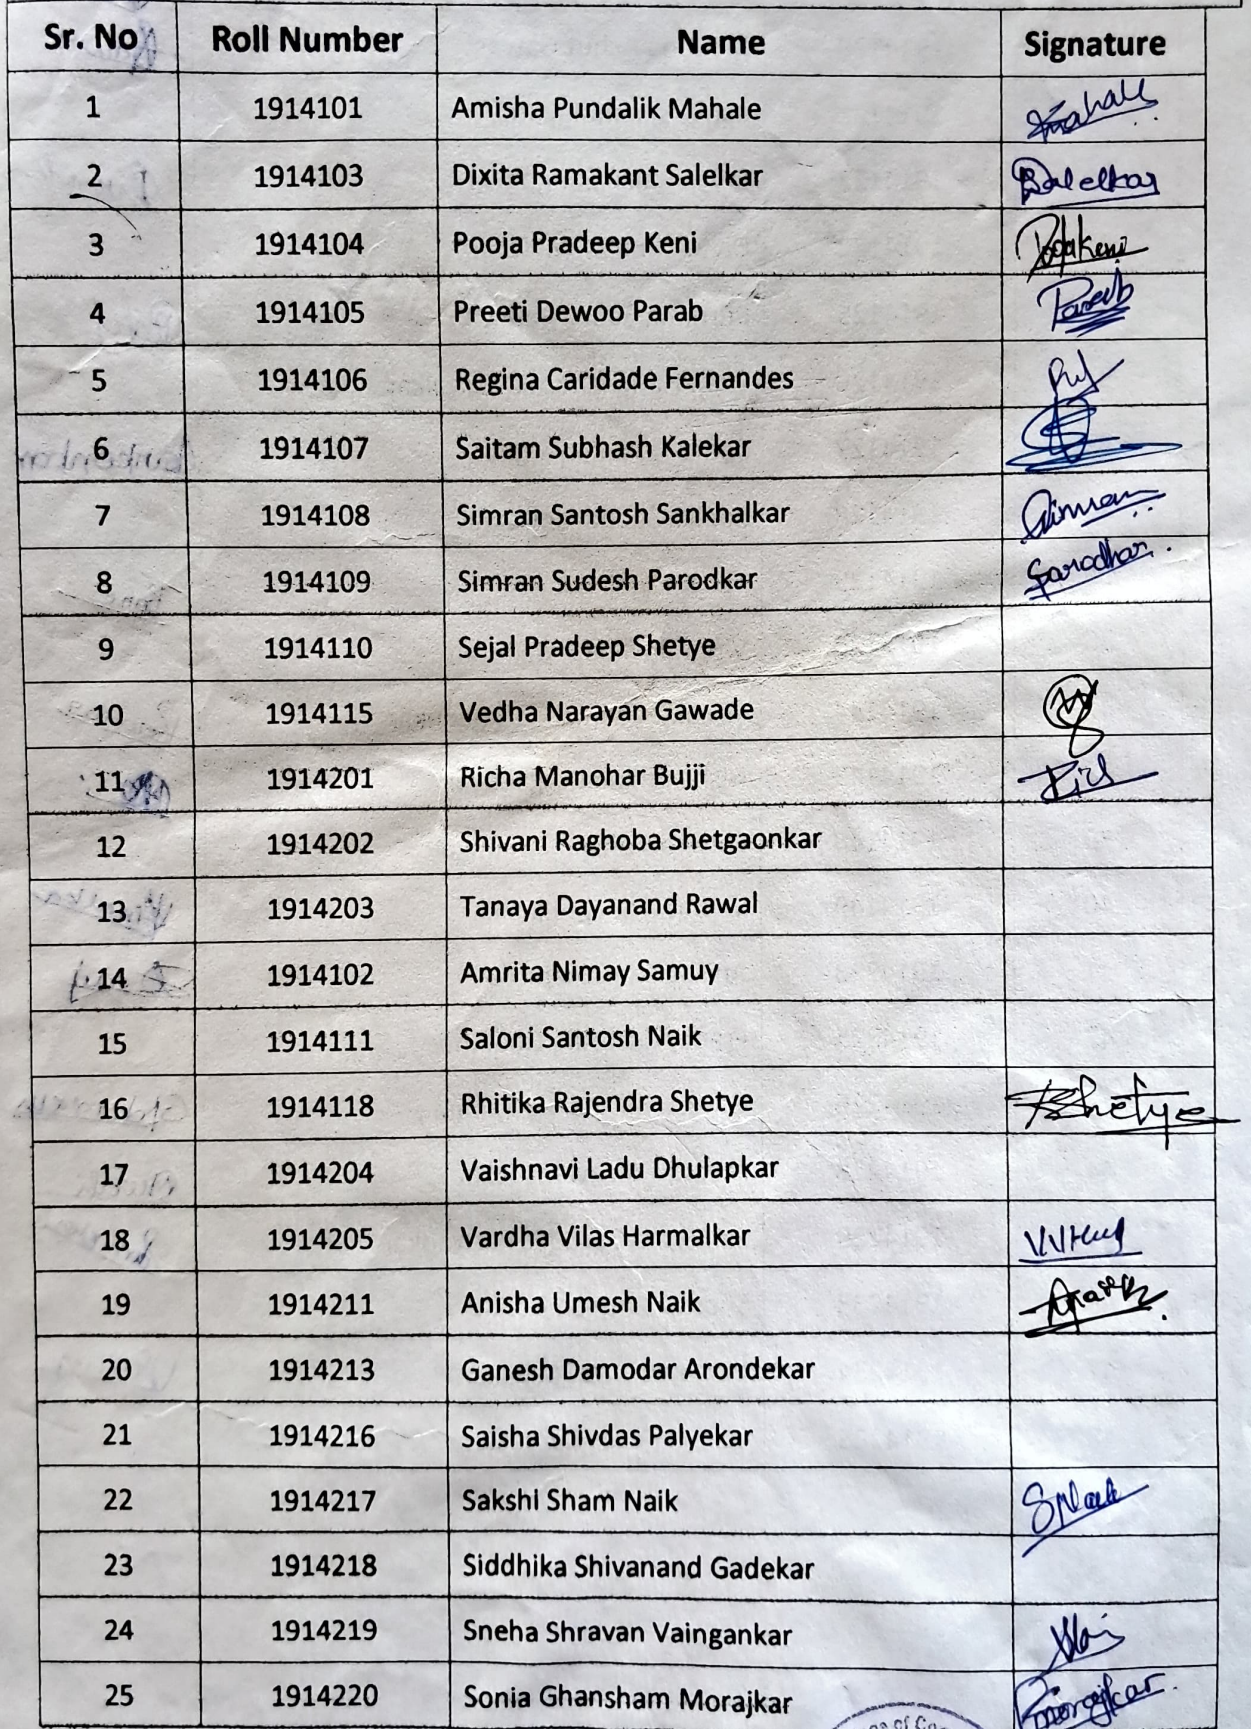 Sr. No Roll Number Name Signature
1 1914101 Amisha Pundalik Mahale Mahale
2 1914103 Dixita Ramakant Salelkar Salelkar
3 1914104 Pooja Pradeep Keni PoojaKeni
4 1914105 Preeti Dewoo Parab Parab
5 1914106 Regina Caridade Fernandes
6 1914107 Saitam Subhash Kalekar
7 1914108 Simran Santosh Sankhalkar Simran
8 1914109 Simran Sudesh Parodkar Parodkar
9 1914110 Sejal Pradeep Shetye
10 1914115 Vedha Narayan Gawade
11 1914201 Richa Manohar Bujji
12 1914202 Shivani Raghoba Shetgaonkar
13 1914203 Tanaya Dayanand Rawal
14 1914102 Amrita Nimay Samuy
15 1914111 Saloni Santosh Naik
16 1914118 Rhitika Rajendra Shetye RShetye
17 1914204 Vaishnavi Ladu Dhulapkar
18 1914205 Vardha Vilas Harmalkar
19 1914211 Anisha Umesh Naik
20 1914213 Ganesh Damodar Arondekar
21 1914216 Saisha Shivdas Palyekar
22 1914217 Sakshi Sham Naik SNaik
23 1914218 Siddhika Shivanand Gadekar
24 1914219 Sneha Shravan Vaingankar
25 1914220 Sonia Ghansham Morajkar Morajkar